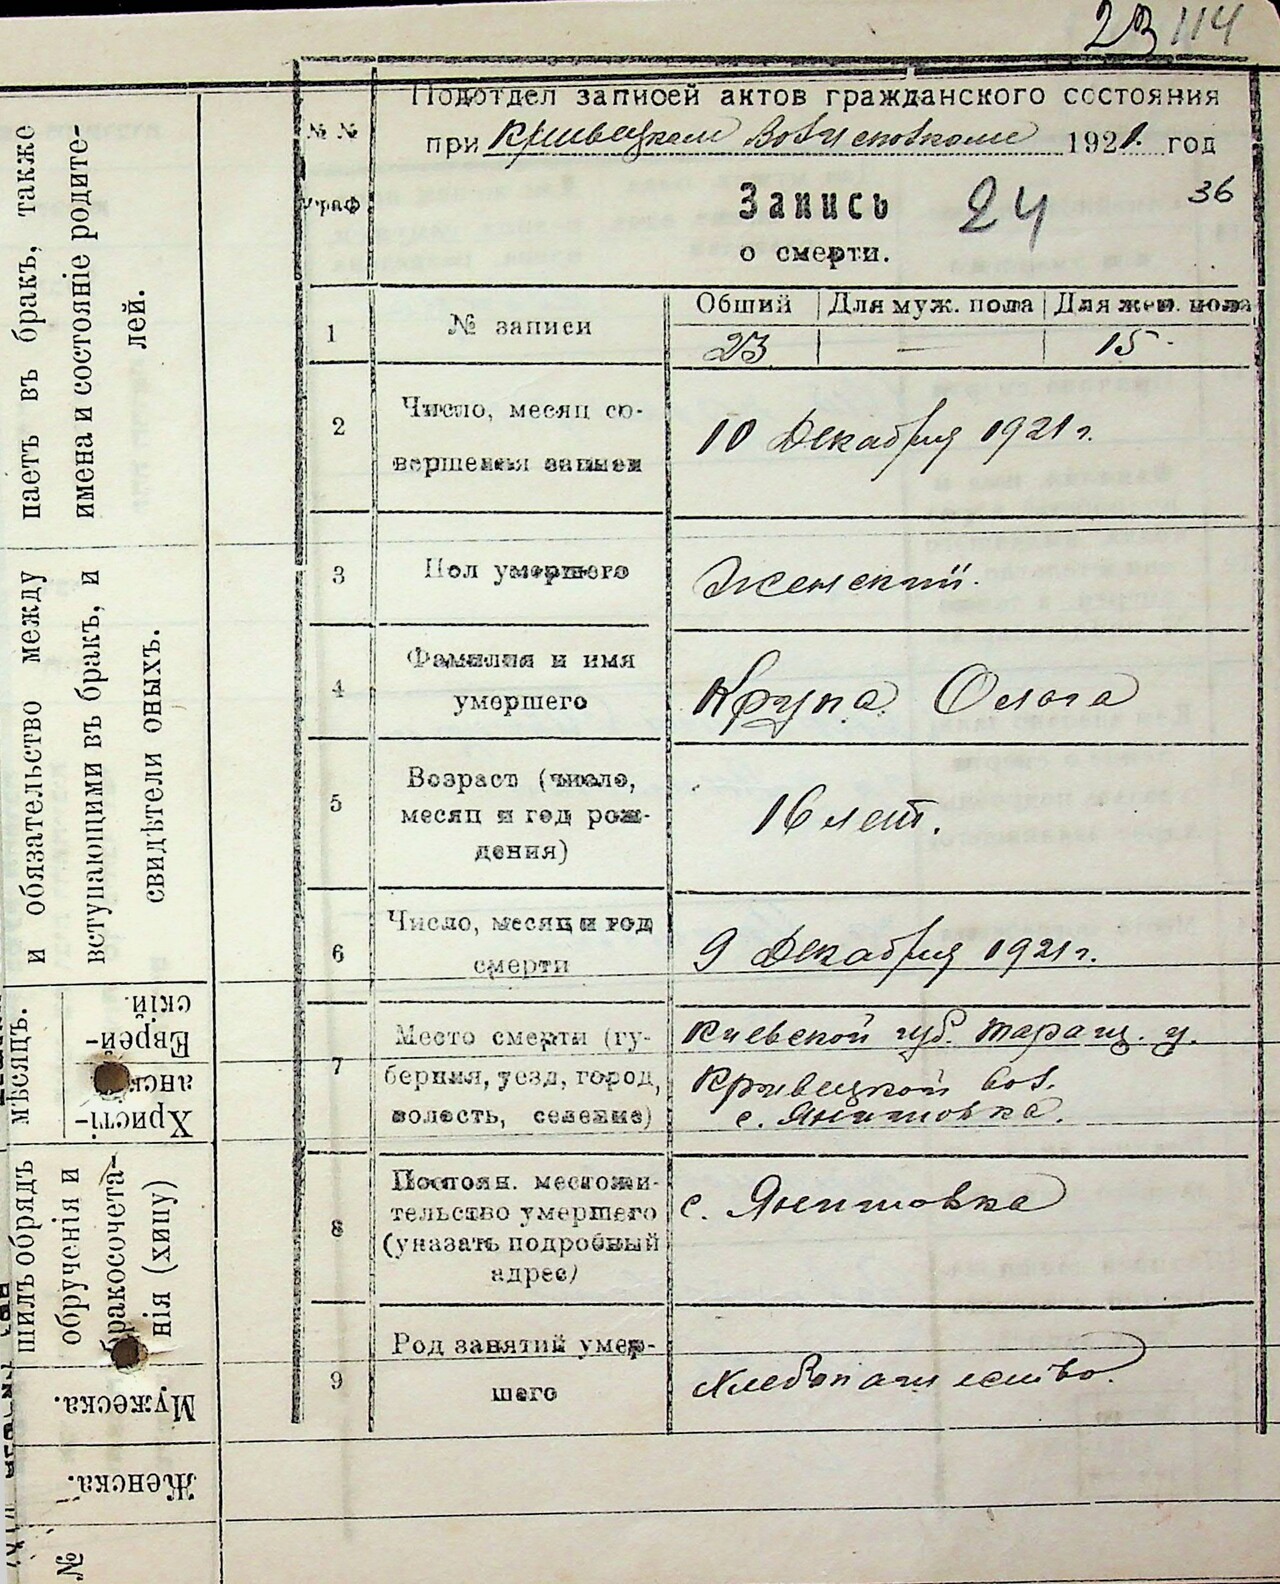 23 114
Подотдел записей актов гражданского состояния
при Кривецком Волисполкоме 1921. год
№ №
граф
Запись 24 36
о смерти.
1 № записи Общий Для муж. пола Для жен. пола
23 — 15.
2 Число, месяц со-
вершения записи
10 Декабря 1921 г.
3 Пол умершего Женский.
4 Фамилия и имя
умершего
Крупа Ольга
5 Возраст (число,
месяц и год рож-
дения)
16 лет.
6 Число, месяц и год
смерти
9 Декабря 1921 г.
7 Место смерти (гу-
берния, уезд, город,
волость, селение)
Киевской губ. Таращ. у.
Кривецкой вол.
с. Янишовка.
8 Постоян. местожи-
тельство умершего
(указать подробный
адрес)
с. Янишовка
9 Род занятий умер-
шего
Хлебопашество.
паетъ въ бракъ, также
имена и состояніе родите-
лей.
и обязательство между
вступающими въ бракъ, и
свидѣтели оныхъ.
мѣсяцъ.
Христі-
анск
Еврей-
скій.
шилъ обрядъ
обрученія и
бракосочета-
нія (хипу)
Мужеска.
Женска.
№